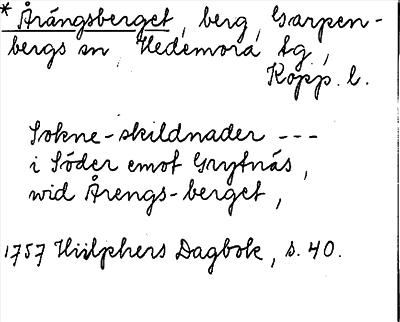 * Årängsberget, berg, Garpen-
bergs sn, Hedemora tg,
Kopp. l.
Sokne-skildnader ---
i Söder emot Grytnäs,
wid Årengs-berget,
1757 Hülphers Dagbok, s. 40.